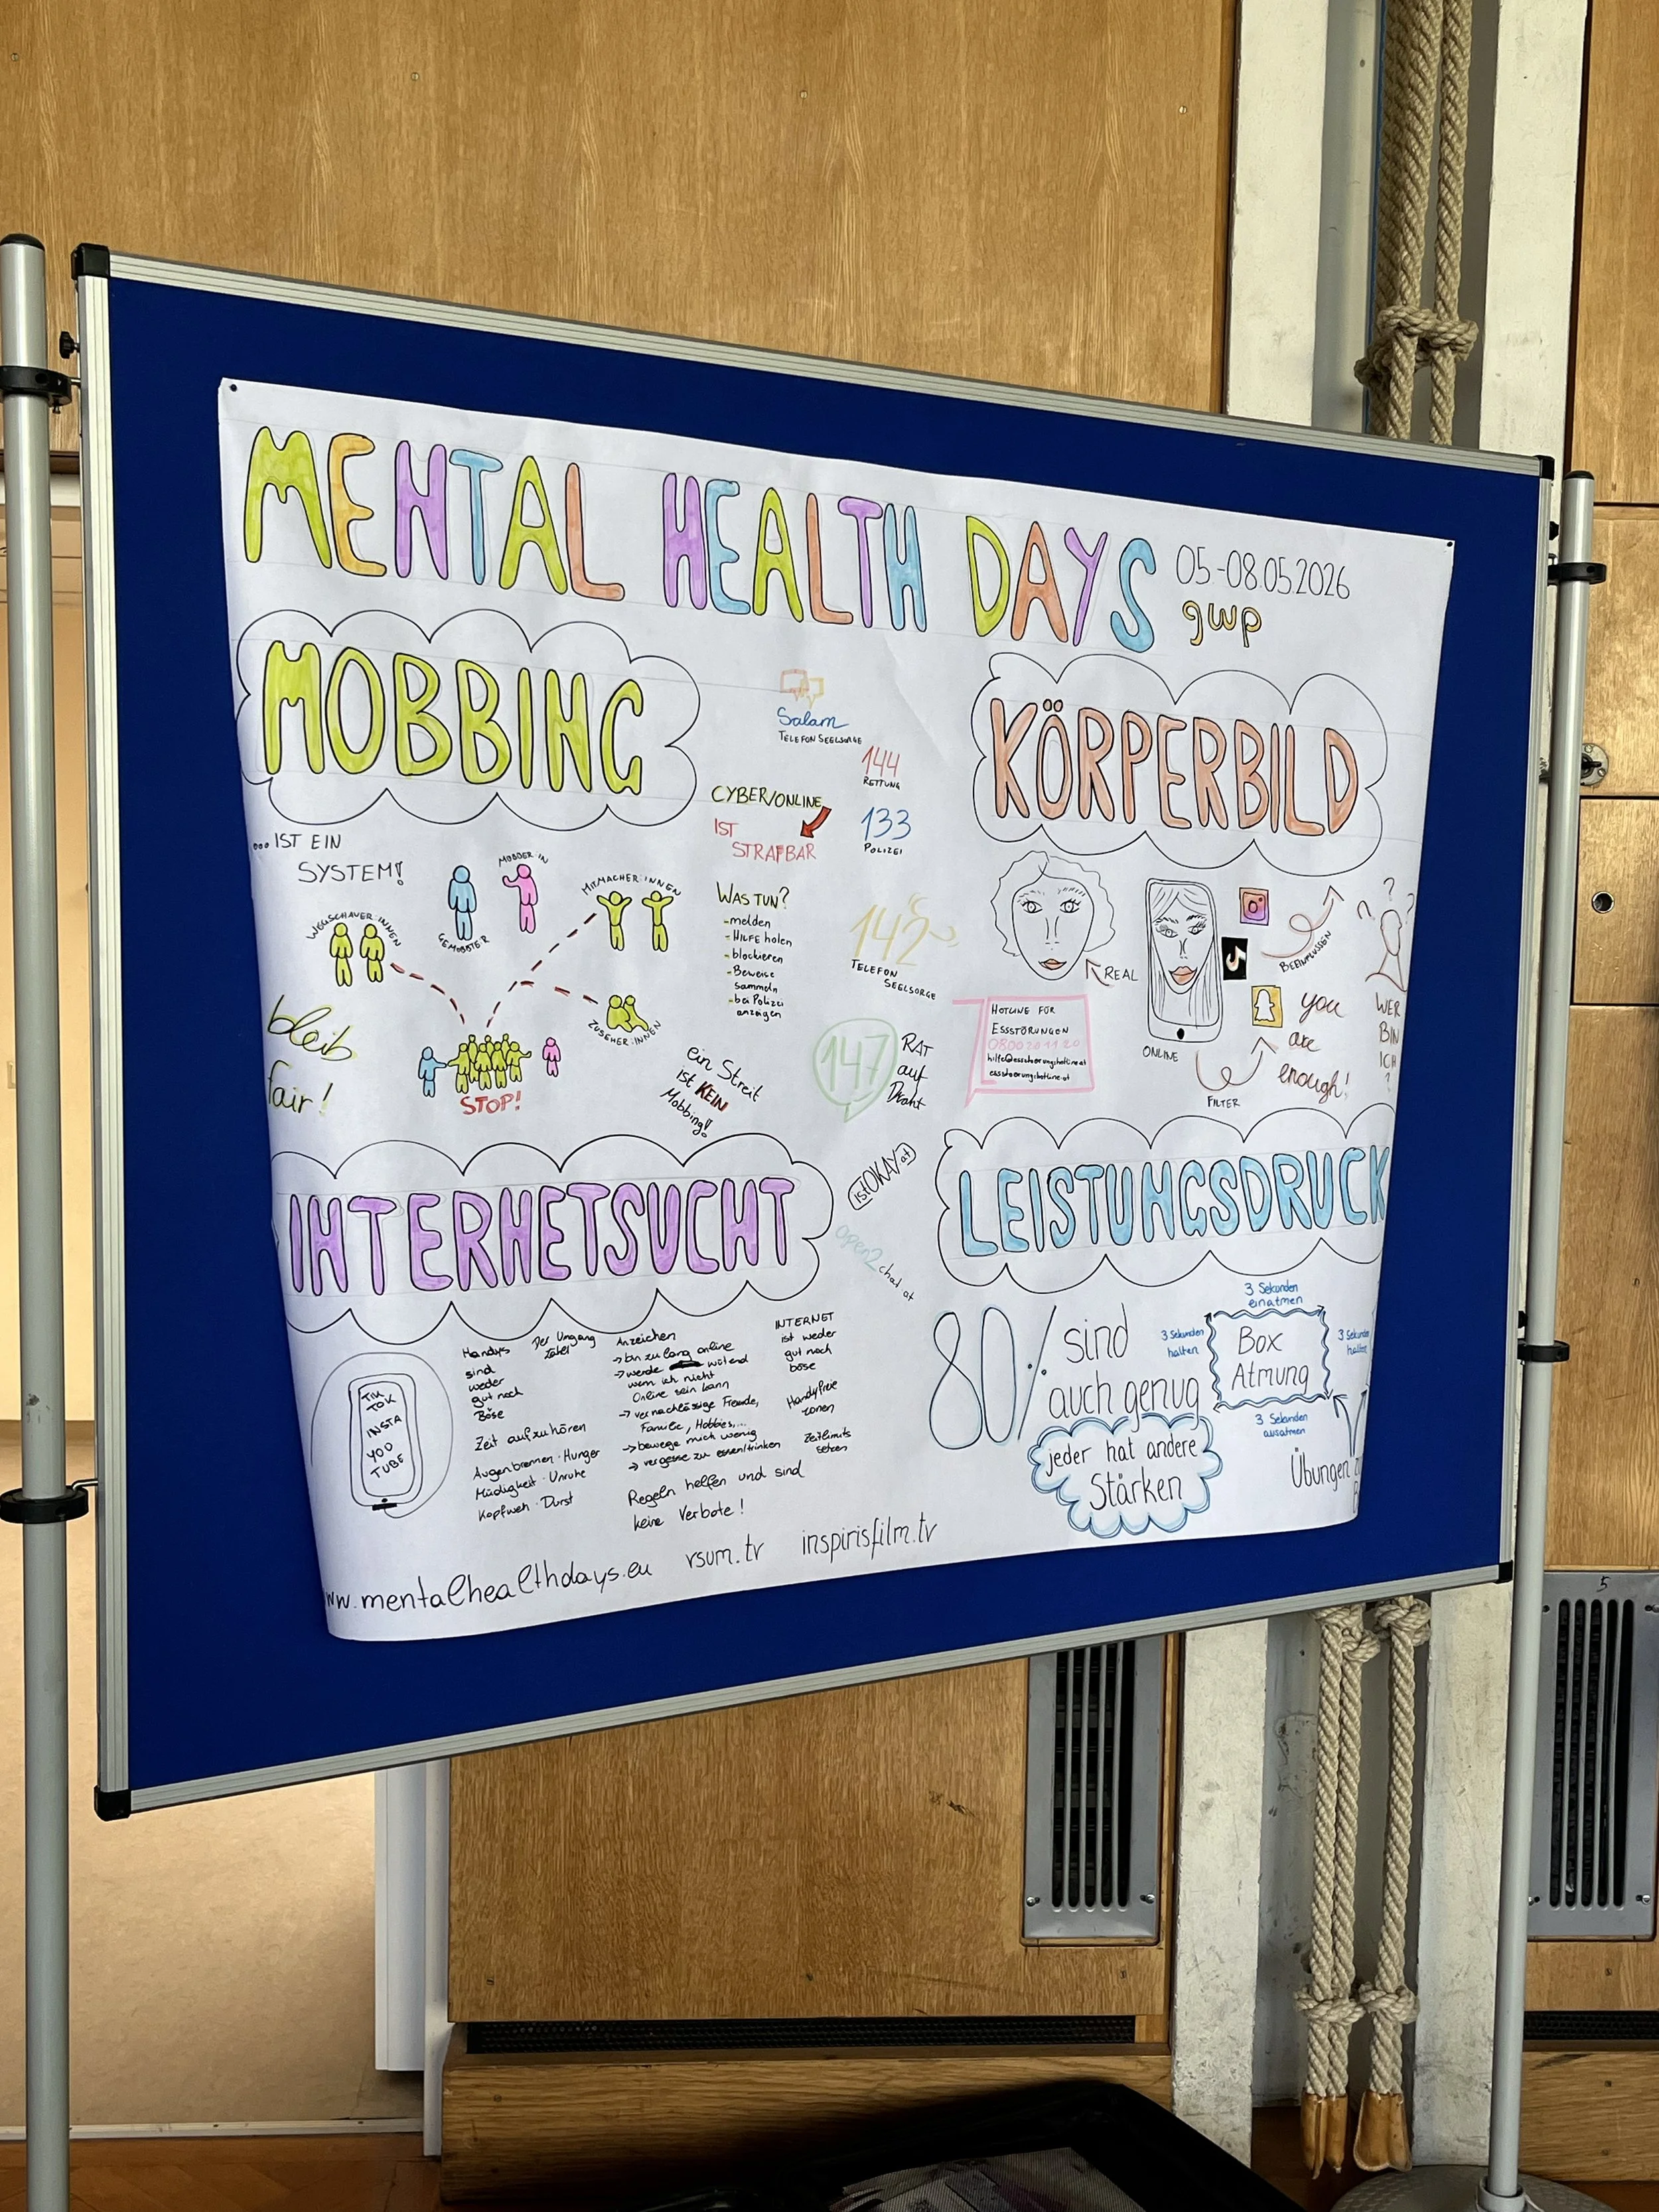 MENTAL HEALTH DAYS
05-08.05.2026
gwp
MOBBING
...IST EIN
SYSTEM!
WEGSCHAUER:INNEN
GEMOBBTER
MOBBER:IN
MITMACHER:INNEN
ZUSEHER:INNEN
STOP!
bleib
fair!
ein Streit
ist KEIN
Mobbing!
CYBER/ONLINE
IST
STRAFBAR
WAS TUN?
-melden
-HILFE holen
-blockieren
-Beweise
sammeln
-bei Polizei
anzeigen
Salam
TELEFONSEELSORGE
144
RETTUNG
133
POLIZEI
142
TELEFON
SEELSORGE
147
RAT
auf
Draht
istOKAY.at
open2chat.at
KÖRPERBILD
REAL
ONLINE
FILTER
BEEINFLUSSEN
you
are
enough!
WER
BIN
ICH
?
? ? ?
HOTLINE FÜR
ESSSTÖRUNGEN
0800 20 11 20
hilfe@essstoerungshotline.at
essstoerungshotline.at
INTERNETSUCHT
TIK
TOK
INSTA
YOU
TUBE
Handys
sind
weder
gut noch
Böse
Der Umgang
zählt
Zeit aufzuhören
Augenbrennen · Hunger
Müdigkeit · Unruhe
Kopfweh · Durst
Anzeichen
→bin zu lang online
→werde wütend
wenn ich nicht
Online sein kann
→vernachlässige Freunde,
Familie, Hobbies,...
→bewege mich wenig
→vergesse zu essen/trinken
Regeln helfen und sind
keine Verbote!
INTERNET
ist weder
gut noch
böse
Handyfreie
zonen
Zeitlimits
setzen
LEISTUNGSDRUCK
80% sind
auch genug
jeder hat andere
Stärken
3 Sekunden
einatmen
3 Sekunden
halten
Box
Atmung
3 Sekunden
halten
3 Sekunden
ausatmen
Übungen
ww.mentalhealthdays.eu rsum.tv inspirisfilm.tv
5